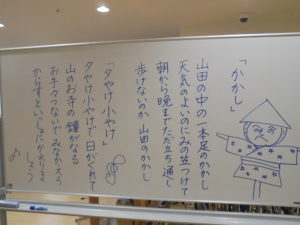 「かかし」
山田の中の一本足のかかし
天気のよいのにみの笠つけて
朝から晩までただ立ち通し
歩けないのか 山田のかかし
「夕やけ小やけ」
夕やけ小やけで日がくれて
山のお寺の鐘がなる
お手々つないでみなかえろう
からすといっしょにかえりましょう